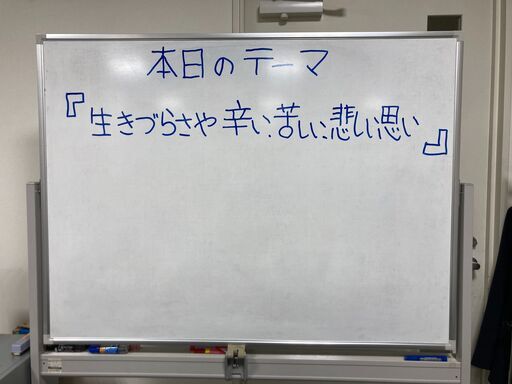 本日のテーマ
『生きづらさや辛い、苦しい、悲しい思い』